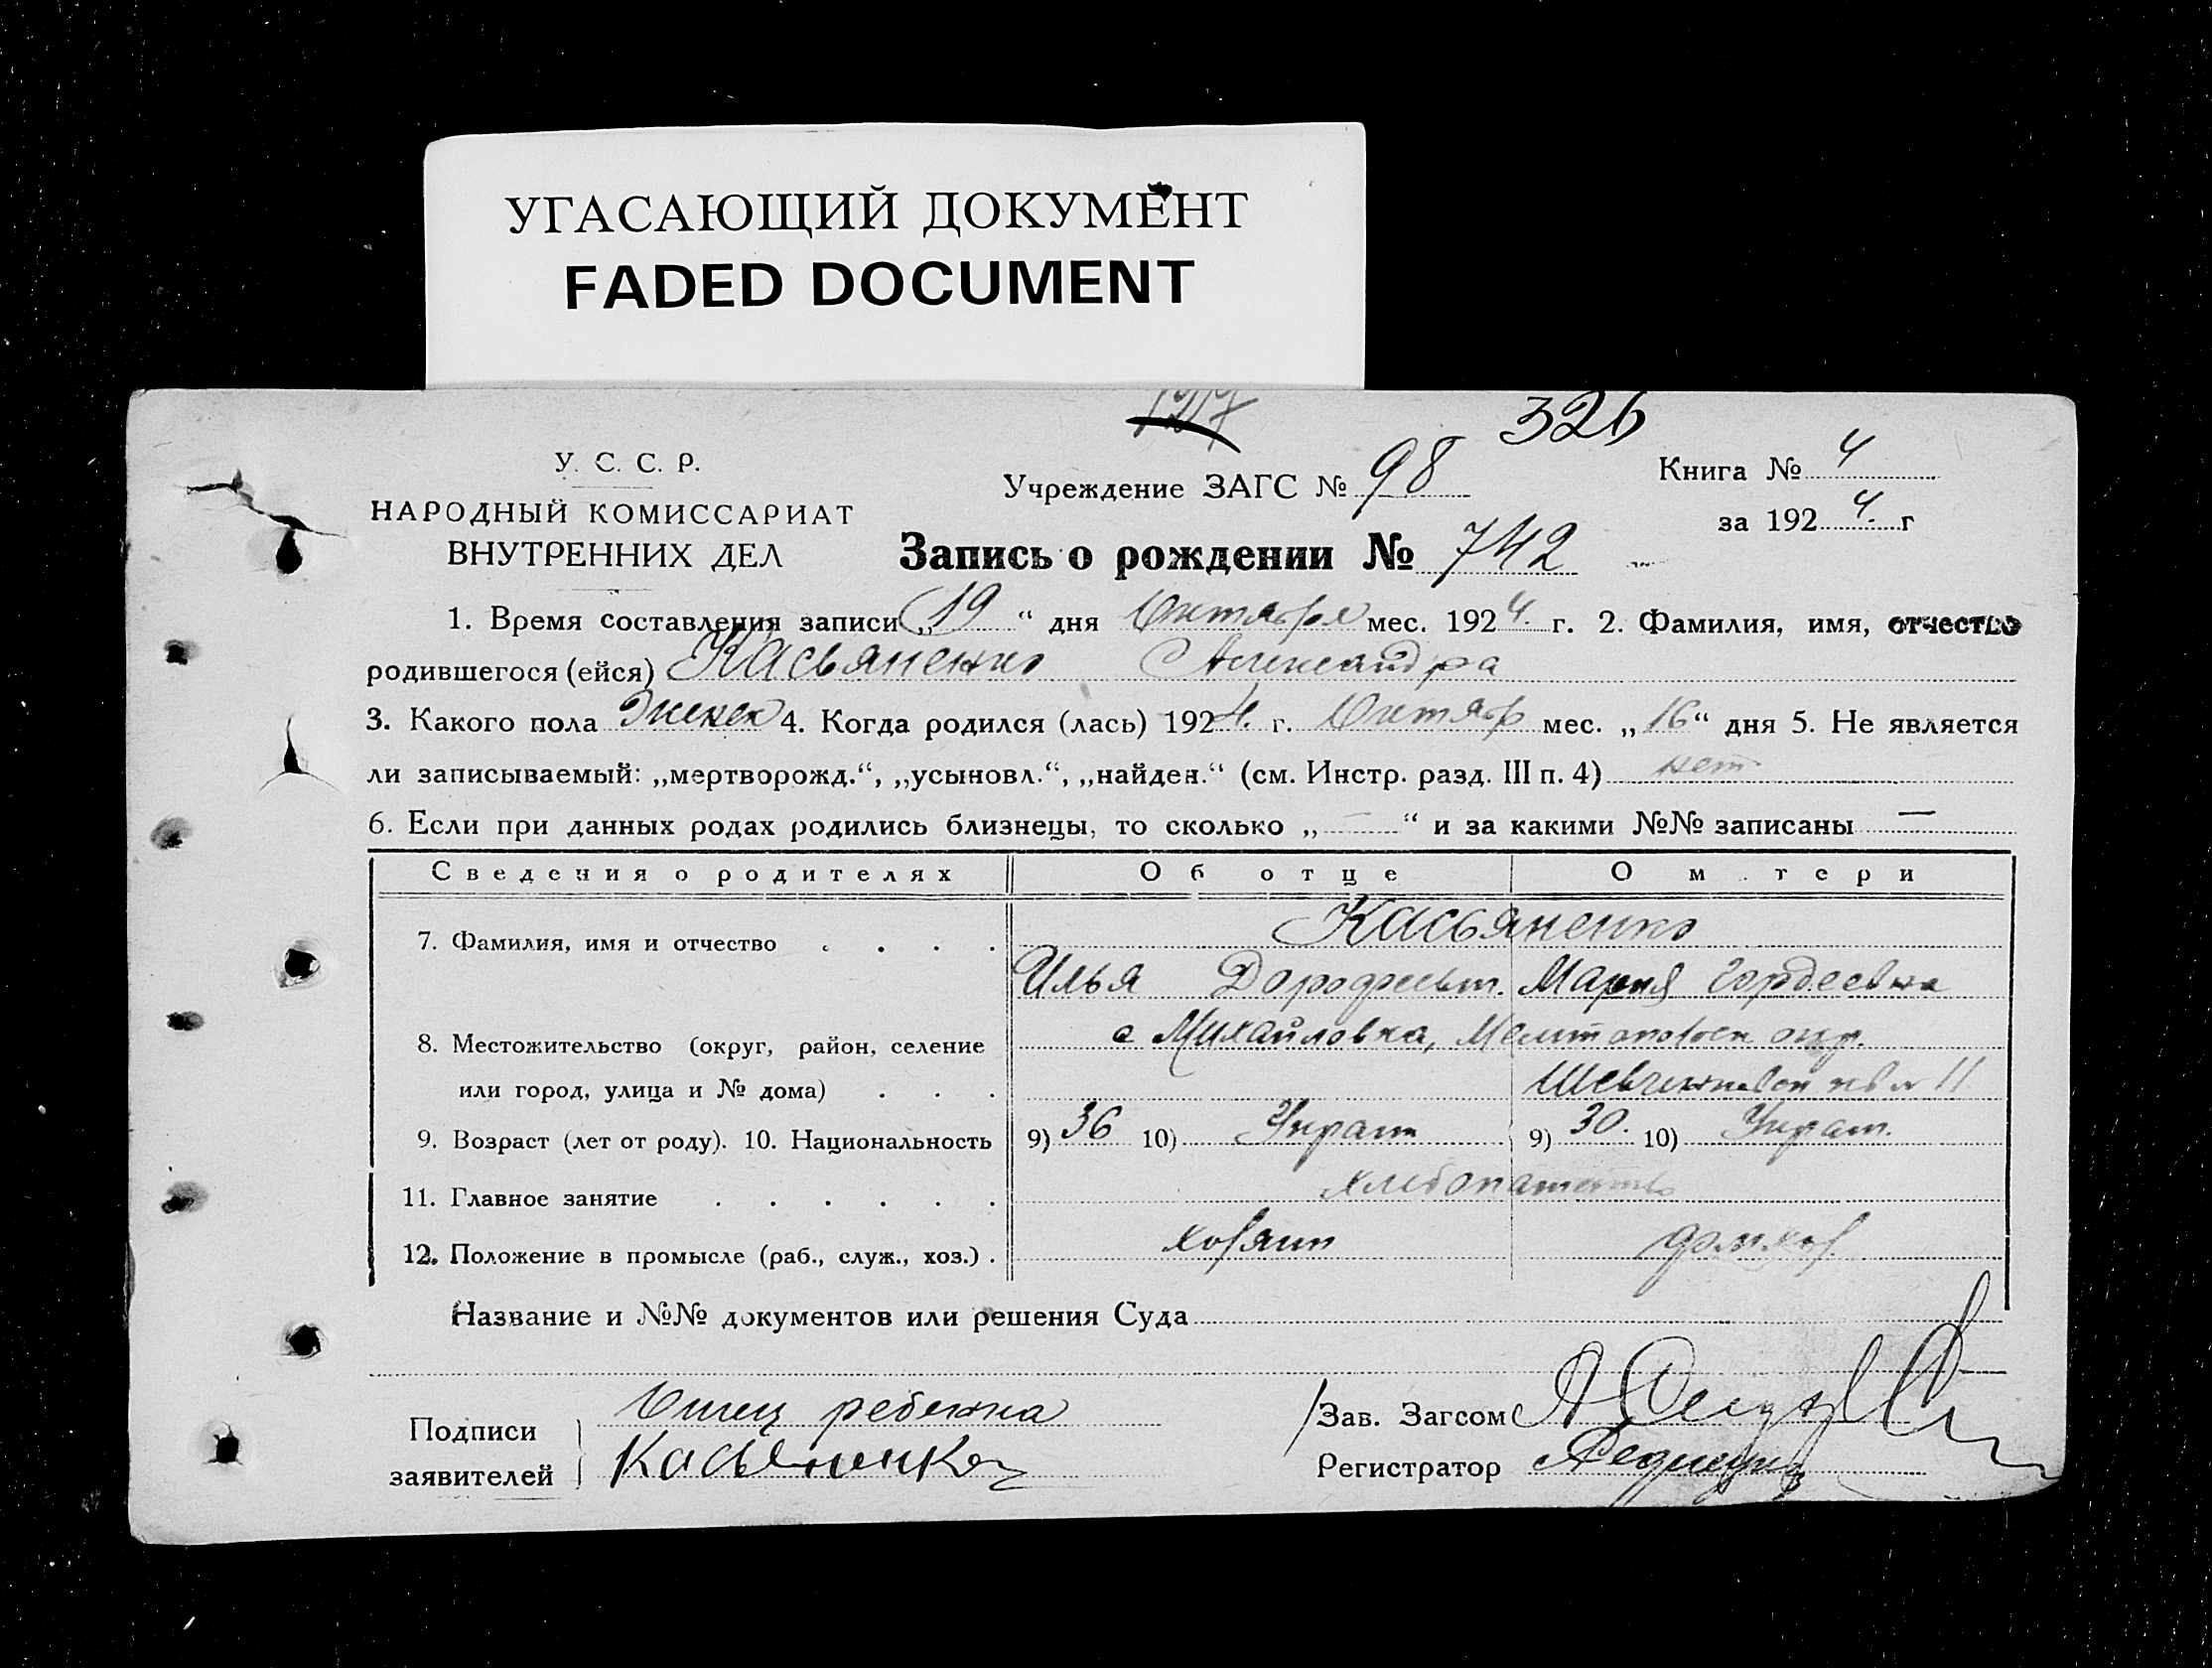 УГАСАЮЩИЙ ДОКУМЕНТ
FADED DOCUMENT
127
326
У. С. С. Р.
НАРОДНЫЙ КОМИССАРИАТ
ВНУТРЕННИХ ДЕЛ
Учреждение ЗАГС № 98
Книга № 4
за 192 4. г
Запись о рождении № 742
1. Время составления записи „ 19 “ дня Октября мес. 192 4. г. 2. Фамилия, имя, отчество
родившегося (ейся) Касьяненко Александра
3. Какого пола Женск 4. Когда родился (лась) 192 4. г. Октябр мес. „ 16 “ дня 5. Не является
ли записываемый: „мертворожд.“, „усыновл.“, „найден.“ (см. Инстр. разд. III п. 4) нет
6. Если при данных родах родились близнецы, то сколько „ — “ и за какими №№ записаны —
Сведения о родителях Об отце О м тери
7. Фамилия, имя и отчество . . . . Касьяненко
Илья Дорофеевич. Мария Гордеевна
8. Местожительство (округ, район, селение с Михайловка, Мелитопольск окр.
или город, улица и № дома) . . . 11
9. Возраст (лет от роду). 10. Национальность 9) 36 10) Украин 9) 30. 10) Украин.
11. Главное занятие . . . . . . хлебопашество
12. Положение в промысле (раб., служ., хоз.) . хозяин дом.хоз.
Название и №№ документов или решения Суда
Подписи заявителей
Отец ребенка
Касьяненко
/Зав. Загсом
Регистратор